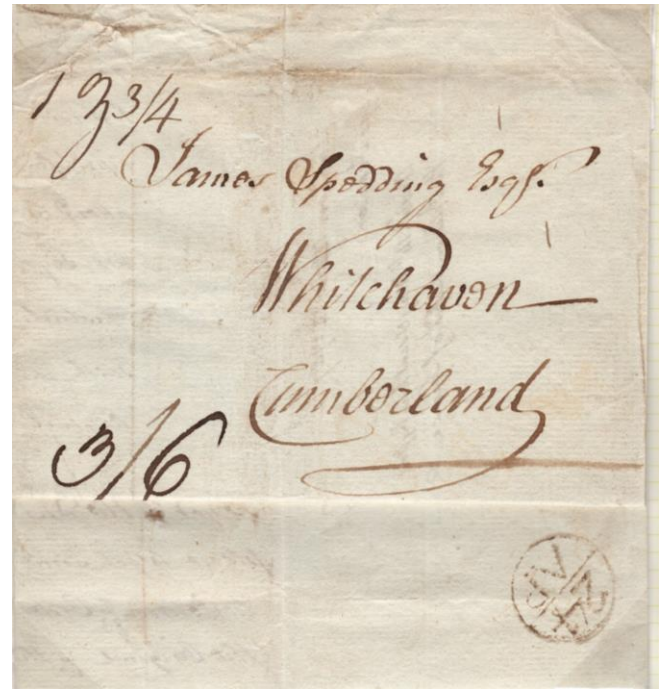 3/4
James Spedding Esqr.
Whitehaven
Cumberland
3/6